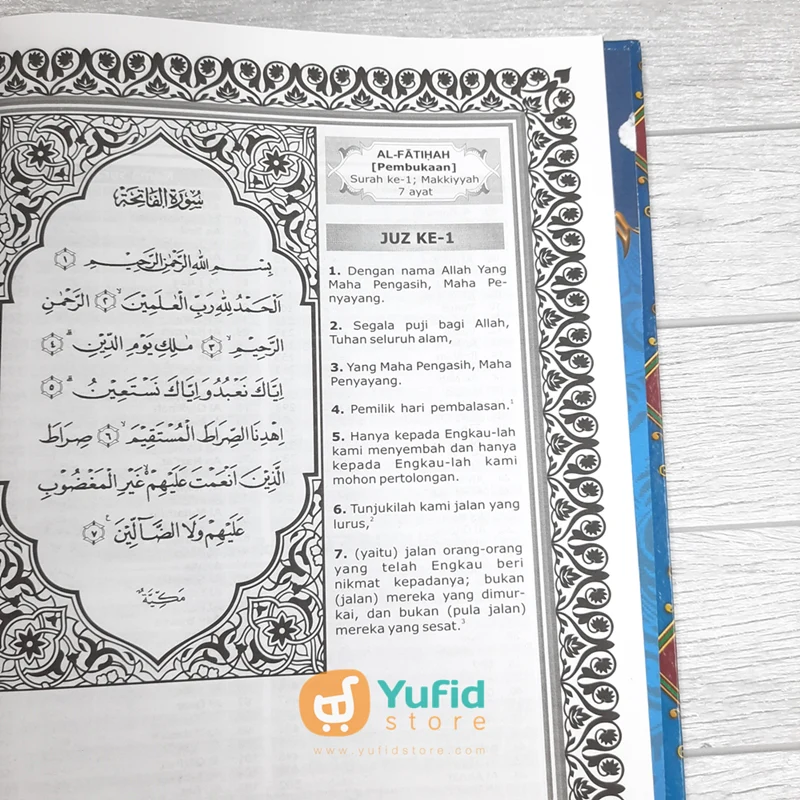 سُورَةُ الْفَاتِحَةِ
بِسْمِ اللّٰهِ الرَّحْمٰنِ الرَّحِيْمِ ۝١
اَلْحَمْدُ لِلّٰهِ رَبِّ الْعٰلَمِيْنَۙ ۝٢ الرَّحْمٰنِ
الرَّحِيْمِۙ ۝٣ مٰلِكِ يَوْمِ الدِّيْنِۗ ۝٤
اِيَّاكَ نَعْبُدُ وَاِيَّاكَ نَسْتَعِيْنُۗ ۝٥
اِهْدِنَا الصِّرَاطَ الْمُسْتَقِيْمَۙ ۝٦ صِرَاطَ
الَّذِيْنَ اَنْعَمْتَ عَلَيْهِمْ ەۙ غَيْرِ الْمَغْضُوْبِ
عَلَيْهِمْ وَلَا الضَّاۤلِّيْنَ ۝٧
مَكِّيَّة
AL-FĀTIḤAH
[Pembukaan]
Surah ke-1; Makkiyyah
7 ayat
JUZ KE-1
1. Dengan nama Allah Yang
Maha Pengasih, Maha Pe-
nyayang.
2. Segala puji bagi Allah,
Tuhan seluruh alam,
3. Yang Maha Pengasih, Maha
Penyayang.
4. Pemilik hari pembalasan.¹
5. Hanya kepada Engkau-lah
kami menyembah dan hanya
kepada Engkau-lah kami
mohon pertolongan.
6. Tunjukilah kami jalan yang
lurus,²
7. (yaitu) jalan orang-orang
yang telah Engkau beri
nikmat kepadanya; bukan
(jalan) mereka yang dimur-
kai, dan bukan (pula jalan)
mereka yang sesat.³
Yufid
store
www.yufidstore.com